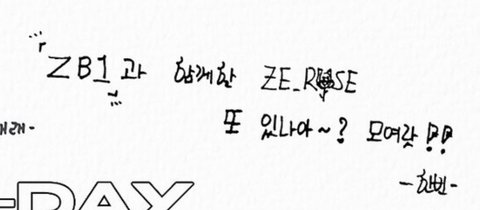 ZB1과 함께할 ZE_ROSE
또 있나아~? 모여랏!!
-한빈-
-DAY